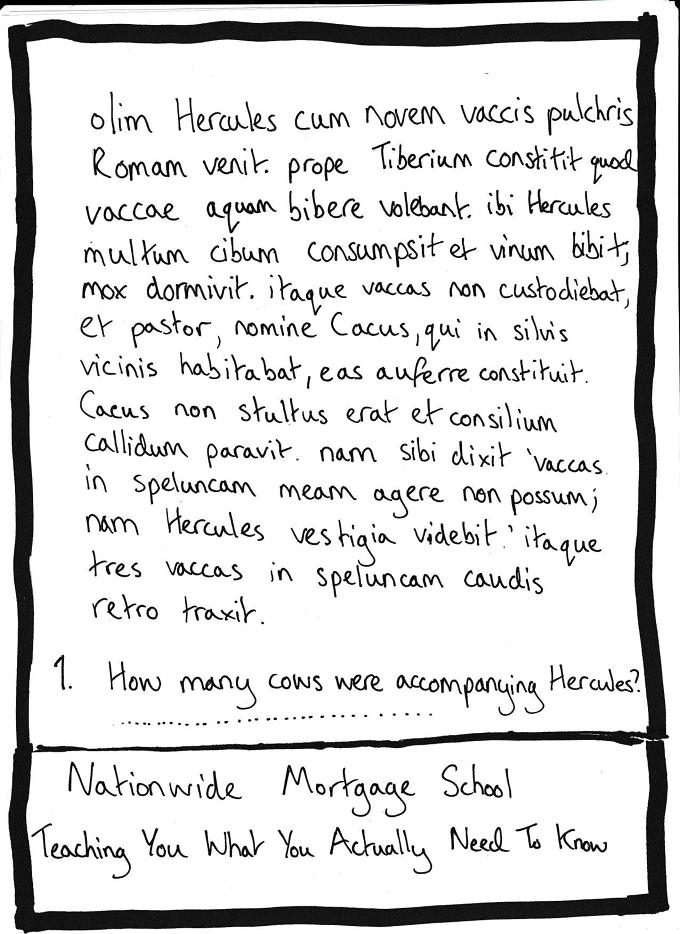 olim Hercules cum novem vaccis pulchris
Romam venit. prope Tiberium constitit quod
vaccae aquam bibere volebant. ibi Hercules
multum cibum consumpsit et vinum bibit;
mox dormivit. itaque vaccas non custodiebat,
et pastor, nomine Cacus, qui in silvis
vicinis habitabat, eas auferre constituit.
Cacus non stultus erat et consilium
callidum paravit. nam sibi dixit 'vaccas
in speluncam meam agere non possum;
nam Hercules vestigia videbit.' itaque
tres vaccas in speluncam caudis
retro traxit.
1. How many cows were accompanying Hercules?
Nationwide Mortgage School
Teaching You What You Actually Need To Know